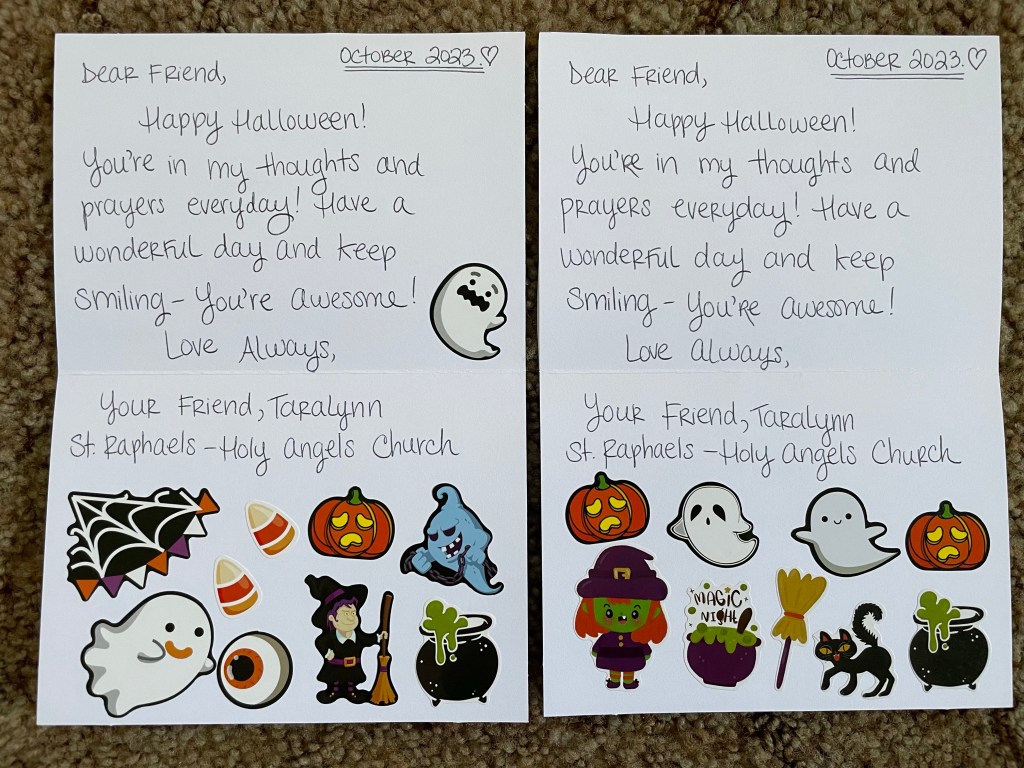 October 2023.♡
Dear Friend,
Happy Halloween!
You're in my thoughts and
prayers everyday! Have a
wonderful day and keep
smiling - You're awesome!
Love Always,
Your Friend, Taralynn
St. Raphaels - Holy Angels Church
October 2023.♡
Dear Friend,
Happy Halloween!
You're in my thoughts and
prayers everyday! Have a
wonderful day and keep
smiling - You're awesome!
Love always,
Your Friend, Taralynn
St. Raphaels - Holy Angels Church
MAGIC
NIGHT